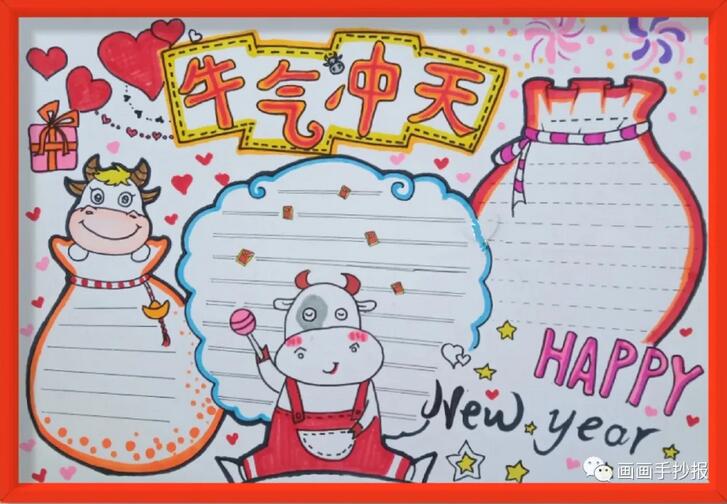 牛气冲天
HAPPY
New year
画画手抄报